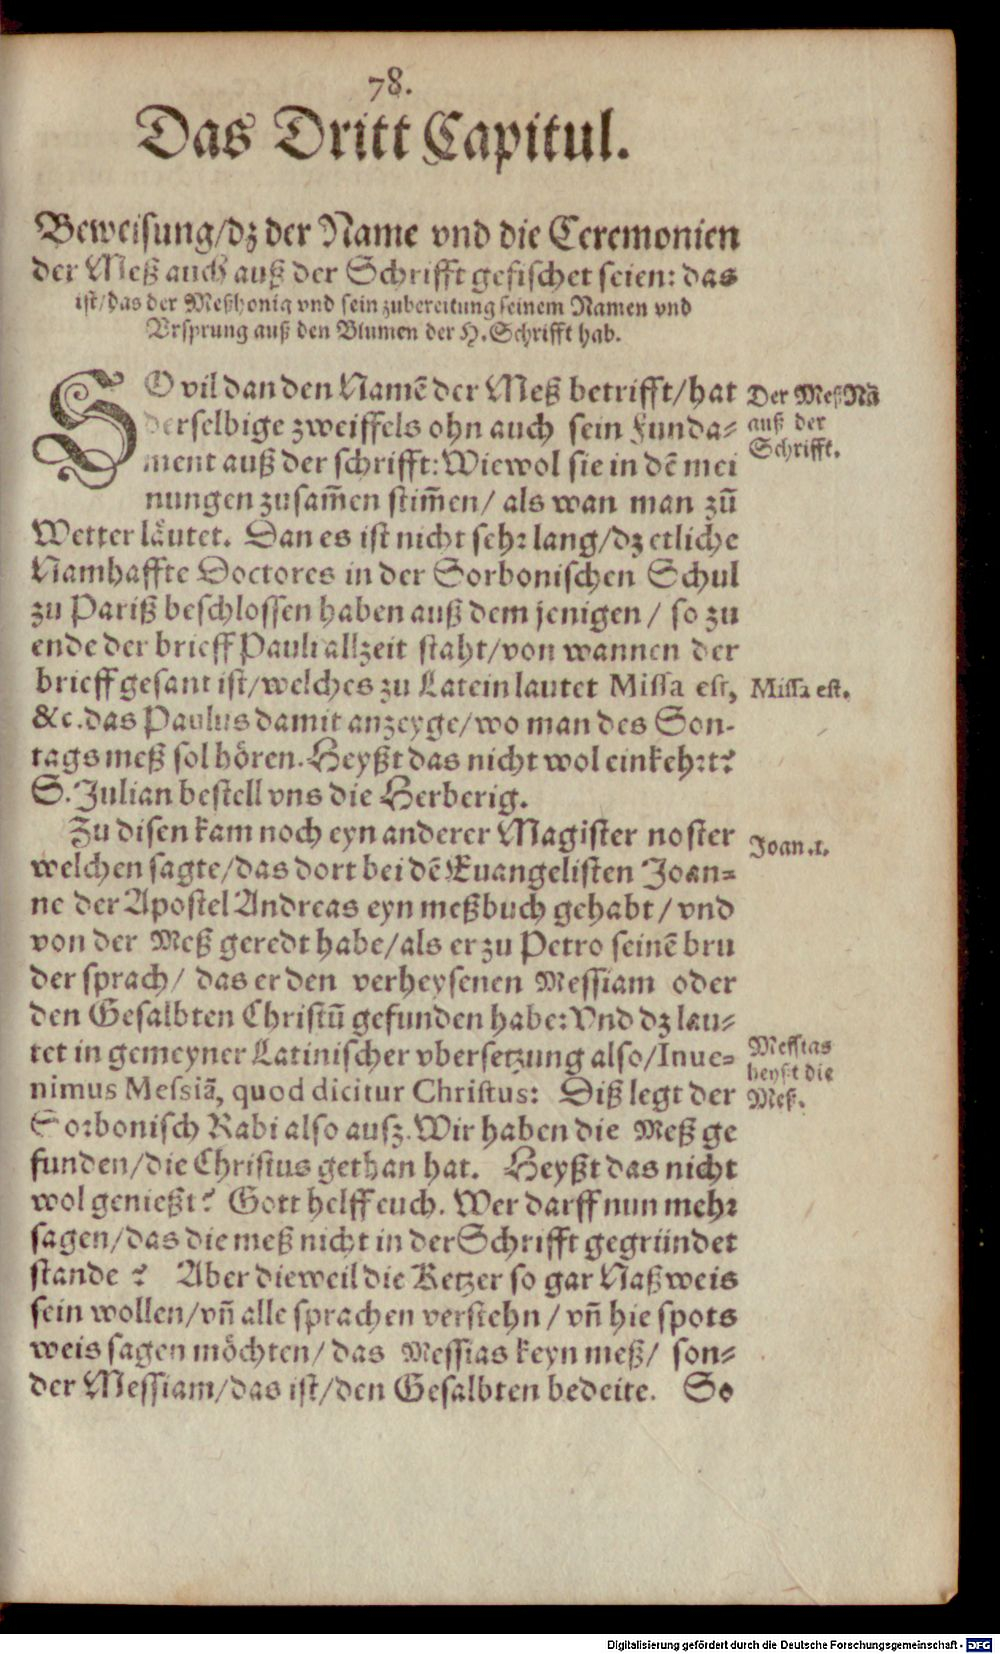 78.
Das Dritt Capitul.
Beweisung/dz der Name vnd die Ceremonien
der Meß auch auß der Schrifft gefischet seien: das
ist/das der Meßhonig vnd sein zubereitung seinem Namen vnd
Vrsprung auß den Blumen der H. Schrifft hab.
SO vil dan den Namẽ der Meß betrifft/hat
derselbige zweiffels ohn auch sein Funda-
ment auß der schrifft: Wiewol sie in dẽ mei
nungen zusam̃en stim̃en/ als wan man zũ
Wetter läutet. Dan es ist nicht sehr lang/dz etliche
Namhaffte Doctores in der Sorbonischen Schul
zu Pariß beschlossen haben auß dem jenigen/ so zu
ende der brieff Pauli allzeit staht/von wannen der
brieff gesant ist/welches zu Latein lautet Missa est,
&c. das Paulus damit anzeyge/wo man des Son-
tags meß sol hören. Heyßt das nicht wol einkehrt?
S. Julian bestell vns die Herberig.
Zu disen kam noch eyn anderer Magister noster
welchen sagte/das dort bei dẽ Euangelisten Joan-
ne der Apostel Andreas eyn meßbuch gehabt/vnd
von der Meß geredt habe/als er zu Petro seinẽ bru
der sprach/ das er den verheysenen Messiam oder
den Gesalbten Christũ gefunden habe: Vnd dz lau-
tet in gemeyner Latinischer vbersetzung also/Inue-
nimus Messiã, quod dicitur Christus: Diß legt der
Sorbonisch Rabi also ausz. Wir haben die Meß ge
funden/die Christus gethan hat. Heyßt das nicht
wol genießt? Gott helff euch. Wer darff nun mehr
sagen/das die meß nicht in der Schrifft gegründet
stande? Aber dieweil die Ketzer so gar Naßweis
sein wollen/vñ alle sprachen verstehn/vñ hie spots
weis sagen möchten/das Messias keyn meß/ son-
der Messiam/das ist/den Gesalbten bedeite. So
Der Meß Nã
auß der
Schrifft.
Missa est.
Joan.1.
Messias
heyßt die
Meß.
Digitalisierung gefördert durch die Deutsche Forschungsgemeinschaft - DFG